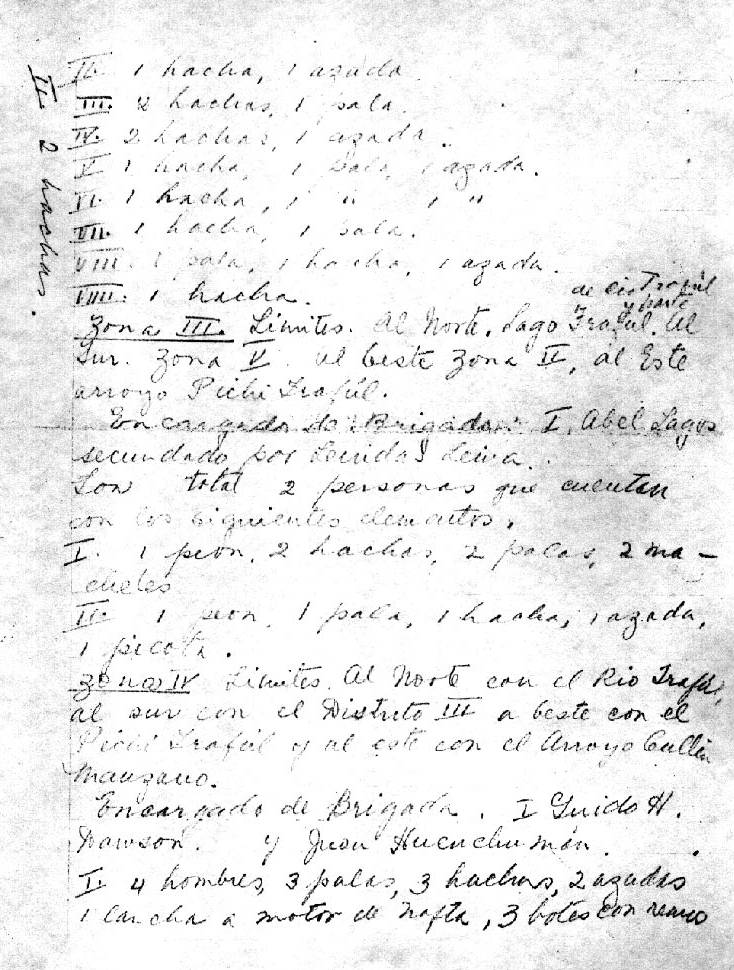 II. 1 hacha, 1 azada
III. 2 hachas, 1 pala.
IV. 2 hachas, 1 azada.
V 1 hacha, 1 pala, 1 azada.
VI. 1 hacha, 1 " 1 "
VII. 1 hacha, 1 pala.
VIII. 1 pala, 1 hacha, 1 azada.
IIII. 1 hacha.
II. 2 hachas.
de Trafúl
y parte
Zona III. Limites. Al Norte, Lago Traful. Al
Sur. Zona V. al Oeste Zona II, al Este
arroyo Pichi Trafúl.
Encargado de Brigada: I. Abel Lagos
secundado por Leiva.
Son total 2 personas que cuentan
con los siguientes elementos.
I. 1 peón, 2 hachas, 2 palas, 2 ma-
chetes
II. 1 peon, 1 pala, 1 hacha, 1 azada,
1 picota.
Zona IV Limites. Al Norte con el Rio Traful,
al sur con el Distrito III a Oeste con el
Pichi Trafúl y al este con el Arroyo Cullin
Manzano.
Encargado de Brigada. I Guido H.
Dawson. y Juan Huenchumán.
I. 4 hombres, 3 palas, 3 hachas, 2 azadas
1 lancha a motor de nafta, 3 botes con remo